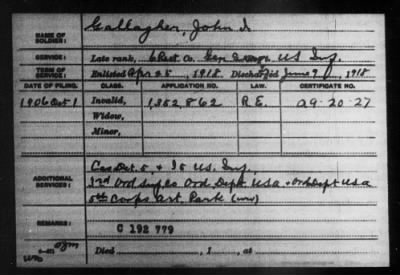 Gallagher, John J.
NAME OF SOLDIER:
SERVICE: Late rank, Rect. Co. US Inf.
TERM OF SERVICE: Enlisted Apr 25, 1918. Discharged June 9, 1918
DATE OF FILING. CLASS. APPLICATION NO. LAW. CERTIFICATE NO.
Oct 1 Invalid, 1,352,862 R.E. 29-20-27
Widow,
Minor,
Cas Det. 5 + US. Inf,
ADDITIONAL SERVICES: Ord Sup Co Ord. Dept. U.S.A. + Ord Dept U.S.A
5th Corps Art. Park (WW)
REMARKS: C 192 779
Died , 1 , at